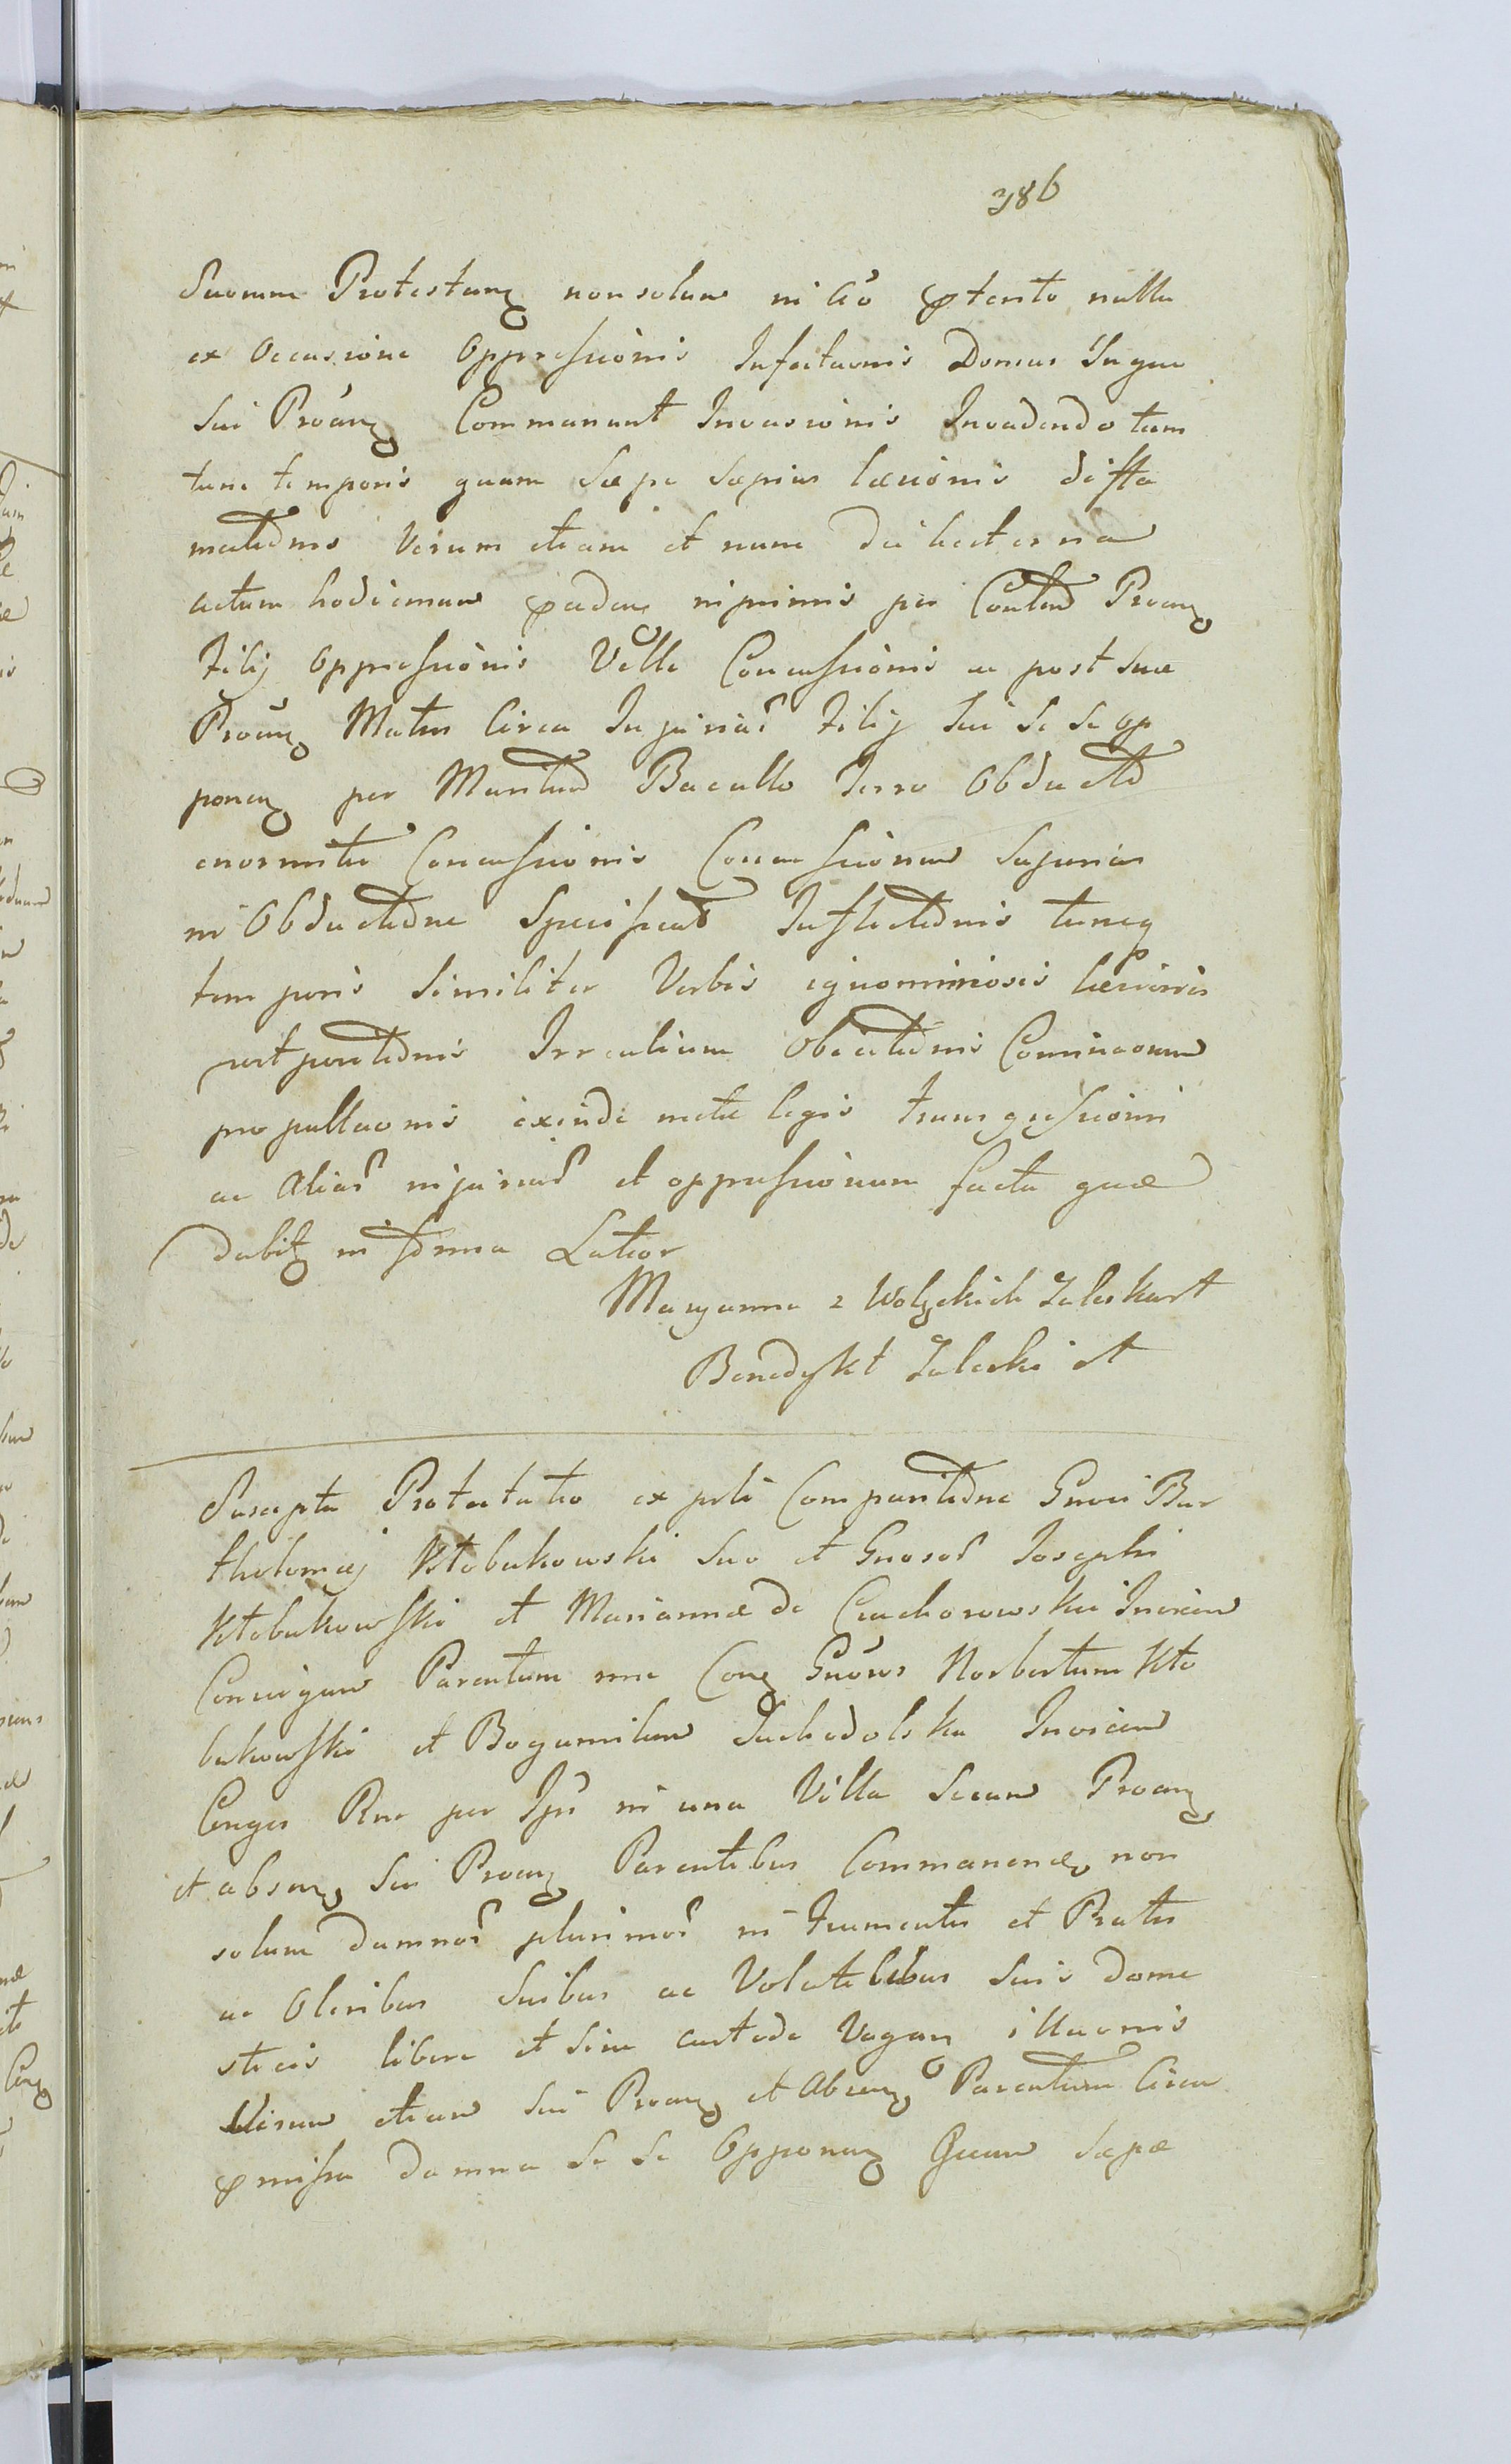 386
Suorum Protestanq non solum in aō pterito nulla
ex Occasione Oppressionis Infestaonis Domus In qua
Sui Proanq Commanent Invasionis Invadendo tam
tunc temporis quam Sæpe Sæpius læsionis diffa
matidnis Verum etiam et nunc die hesterna
actum hodiernum pceden inprimis per Proanq
Filij Oppressionis Velle Concussionis ac post Suæ
Proanq Matris Circa Injurias Filij Sui Se Se op
ponenq per Maritum Bacullo Ferro Obducto
enormiter Concussionis Concussionum Superius
in Obductidne Specificat Inflictidnis tuncq
temporis Similiter Verbis ignominiosis læsionis
vitperatidnis Irrculium Obiectidnis Cominaonum
propullaonis exinde metæ legis transgressioni
ac Alias injurias et oppressionum facta quæ
dabit in forma Latior
Maryanna z Wolskich Zaleska rt
Benedykt Zaleski rt
Suscepta Protestatio ex psti Comparitidne Gnosi Bar
tholomæj Kłobukowski Suo et Gnosor Josephi
Kłobukowski et Mariannæ de Ciechorowskie Invicem
Conuigum Parentum nne Conq Gnosos Norbertum Kło
bukowski et Bogumilam Suchodolska Invicem
Conges Rne per Ips in una Villa Secum Proanq
et absenq Sui Proanq Parentibus Commanenq non
solum damnor plurimor in frumentis et Pratis
ac Oleribus Suibus ac Volatilibus Suis dome
sticis libere et Sine custode Vagan illaonis
Verum etiam Sui Proanq et Absenq Parentum Circa
pmissa damna Se Se Opponenq Quam Sæpe